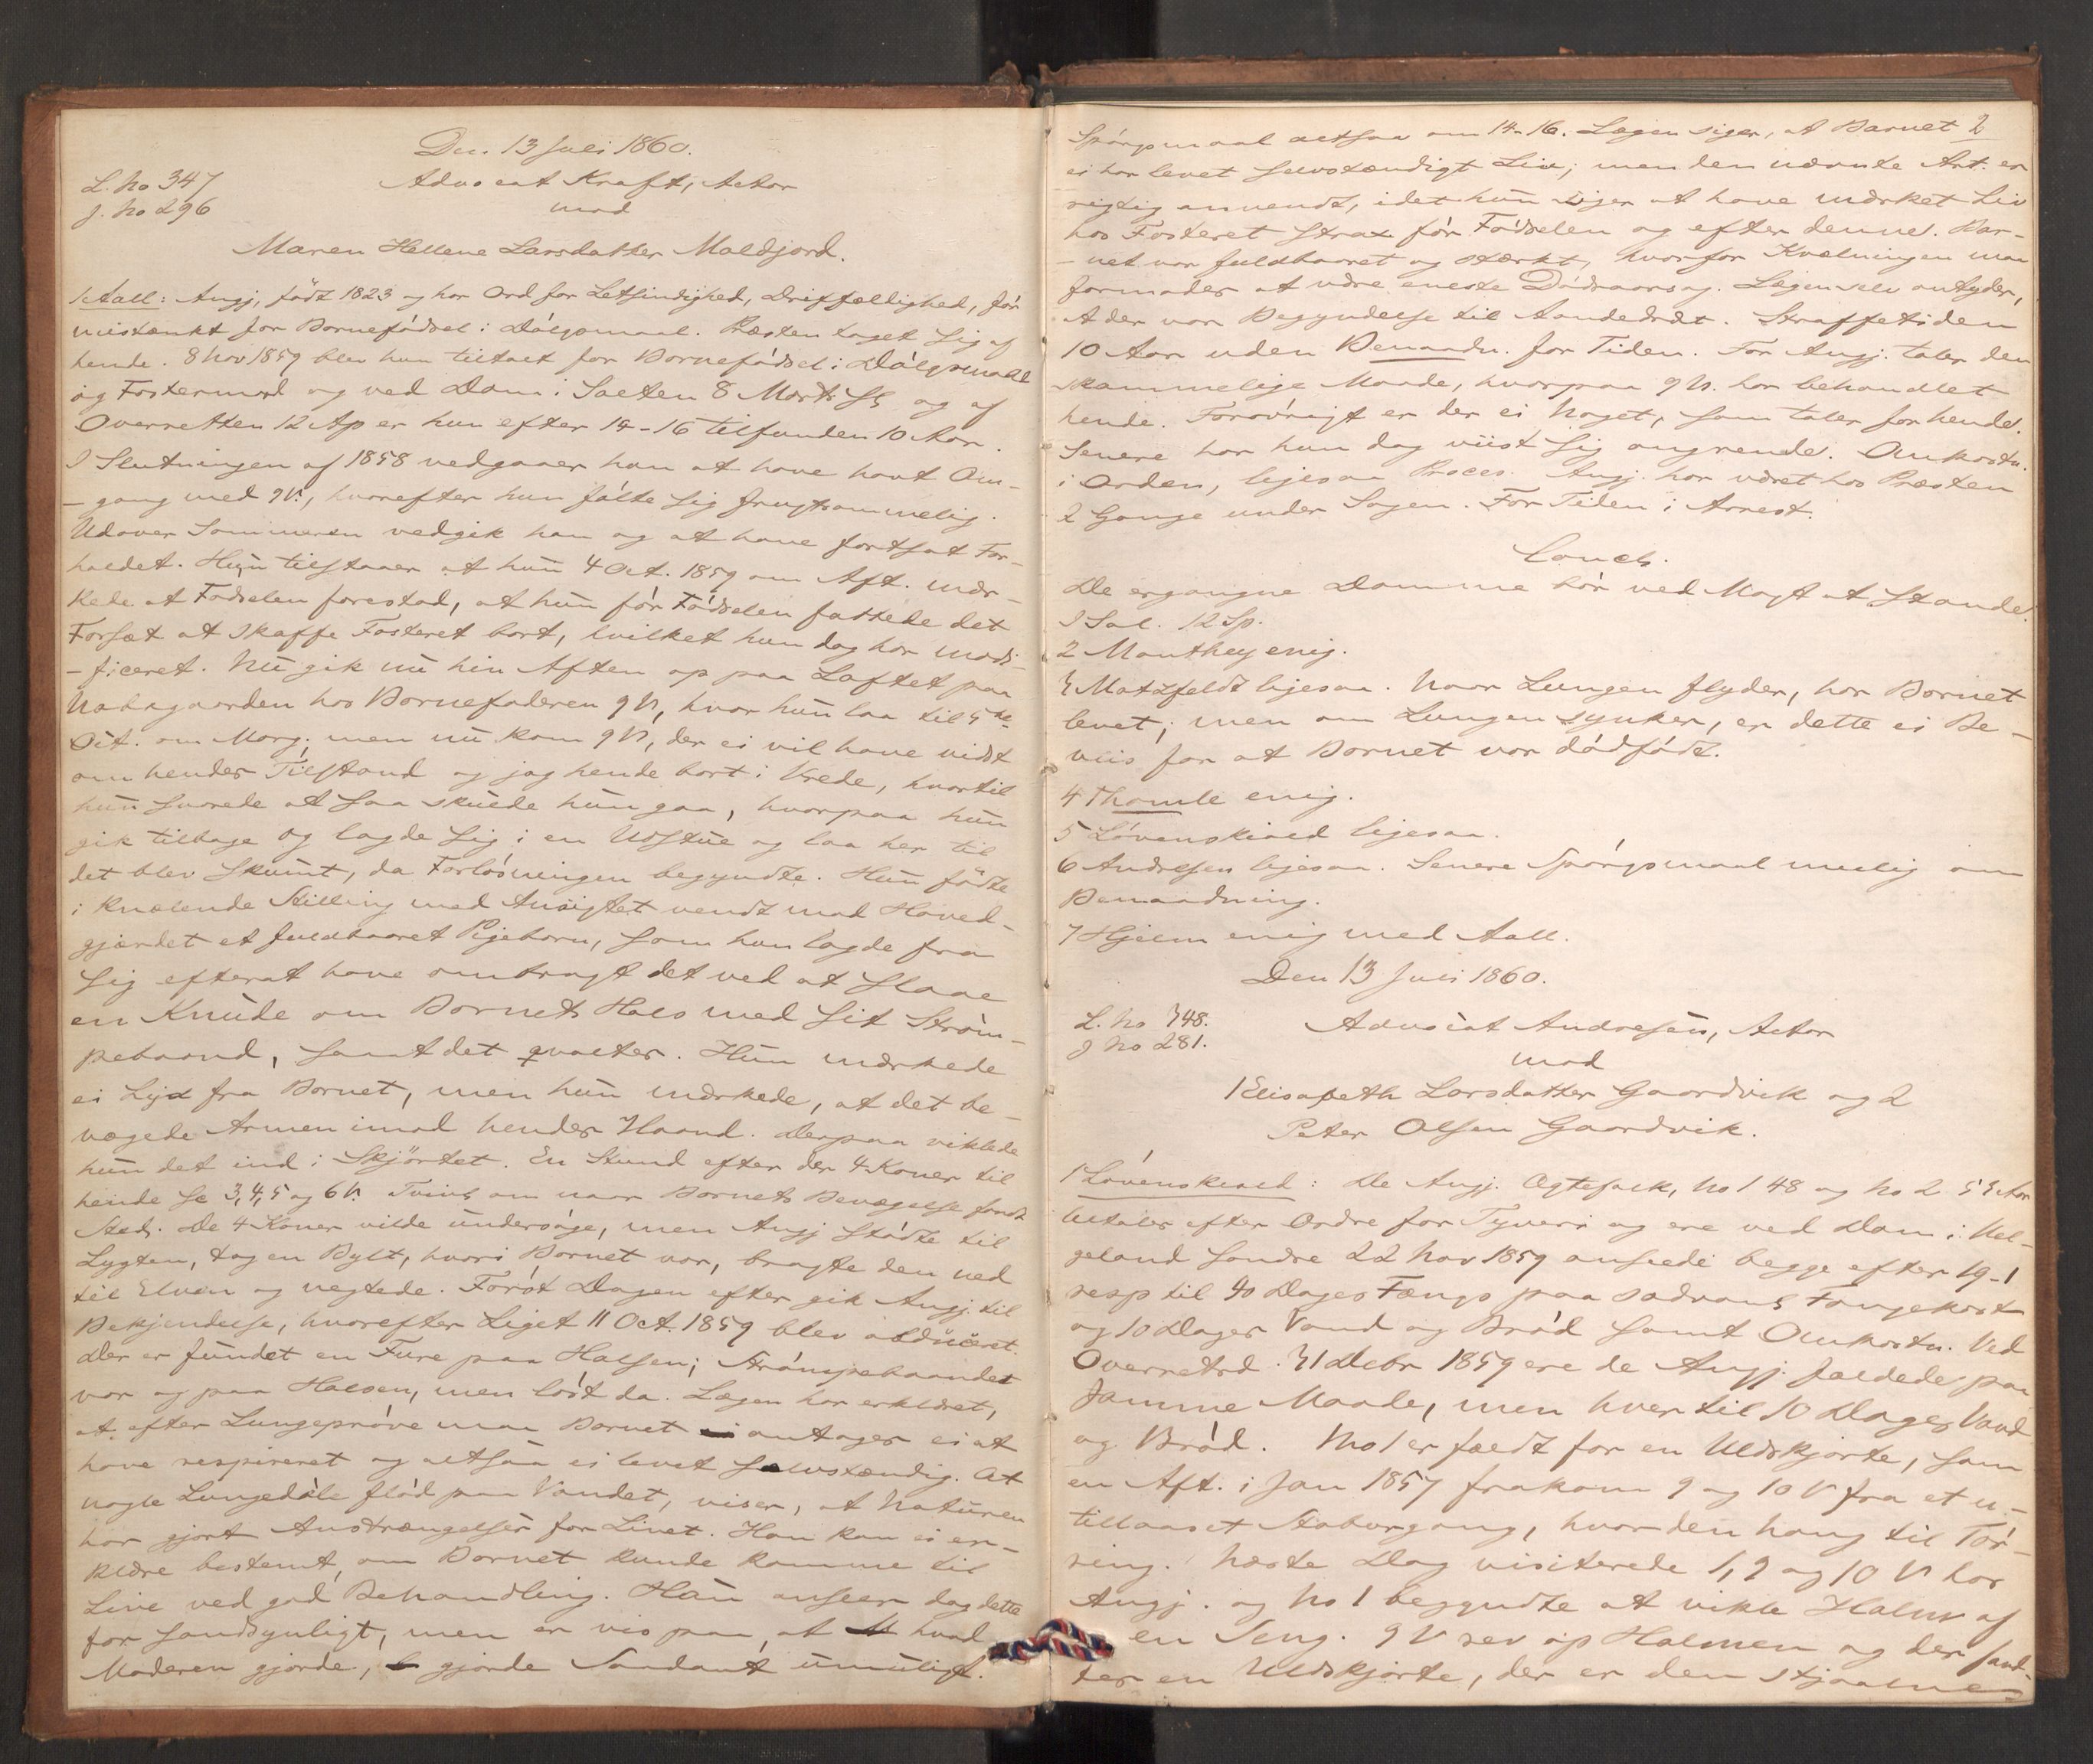 Den 13 Juli 1860.
L. No 347
J. No 296
Advocat Kraft, Actor
mod
Maren Hellene Larsdatter Maldfjord.
1 Aall: Angj. födt 1823 og har Ord for Letsindighed, Driffældighed, før
mistænkt for Barnefødsel i Dølgsmaal. Præsten taget sig af
hende. 8 Nov 1859 blev hun tiltalt for Barnefødsel i Dølgsmaal
og Fostermord og ved Dom i Salten 8 Marts sl og af
Overretten 12 Ap er hun efter 14-16 tilfunden 10 Aar.
I Slutningen af 1858 vedgaaer hun at have havt Om-
-gang med 9 V., hvorefter hun følte sig frugtsommelig.
Udover Sommeren vedgik han og at have fortsat For-
holdet. Hun tilstaaer at hun 4 Oct. 1859 om Aft. mær-
kede at Fødselen forestod, at hun før Fødselen fattede det
Forsæt at skaffe Fosteret bort, hvilket hun dog har modi-
-ficeret. Nu gik nu hin Aften op paa Loftet paa
Nabogaarden hos Barnefaderen 9 V, hvor hun laa til 5te
Oct. om Morg; men nu kom 9 V, der ei vil have vidst
om hendes Tilstand og jog hende bort i Vrede, hvortil
hun svarede at saa skulde hun gaa, hvorpaa hun
gik tilbage og lagde sig i en Udstue og laa her til
det blev skumt, da Forløsningen begyndte. Hun fødte
i knælende Stilling med Ansigtet vendt mod Hoved-
gjærdet et fuldbaaret Pigebarn, som hun lagde fra
sig efterat have ombragt det ved at slaae
en Knude om Barnets Hals med sit Strøm-
pebaand, samt det qvalter. Hun mærkede
ei Lyd fra Barnet, men hun mærkede, at det be-
vægede Armen imod hendes Haand. Derpaa viklede
hun det ind i Skjørtet. En Stund efter der 4 Koner til
hende se 3, 4, 5 og 6 V. Tvivl om naar Barnets Bevægelse fandt
Sted. De 4 Koner vilde undersøge, men Angj stødte til
Lygten, tog en Bylt, hvori Barnet var, bragte den ned
til Elven og negtede. Først Dagen efter gik Angj. til
Bekjendelse, hvorefter Liget 11 Oct. 1859 blev obduceret.
Der er fundet en Fure paa Halsen; Strømpebaandet
var og paa Halsen, men løst da. Lægen har erklæret,
at efter Lungeprøve maa Barnet antages ei at
have respireret og altsaa ei levet selvstændig. At
nogle Lungedele flød paa Vandet, viser, at Naturen
har gjort Anstrængelser for Livet. Han kan ei er-
klære bestemt, om Barnet kunde komme til
Live ved god Behandling. Han anseer dog dette
for sandsynligt, men er vis paa, at hvad
Moderen gjorde, gjorde Saadant umuligt.
Spørgsmaal altsaa om 14-16. Lægen siger, at Barnet 2
ei har levet selvstændigt Liv; men den nævnte Art. er
rigtig anvendt, idet hun siger at have mærket Liv
hos Fosteret strax før Fødselen og efter denne. Bar-
-net var fuldbaaret og stærkt, hvorfor Kvælningen maa
formodes at være eneste Dødsaarsag. Lægen selv antyder,
at der var Begyndelse til Aandedræt. Straffetiden
10 Aar uden Benaadn. for Tiden. For Angj. taler den
skammelige Maade, hvorpaa 9 V. har behandlet
hende. Forøvrigt er der ei Noget, som taler for hende.
Senere har hun dog viist sig angrende. Omkostn.
i Orden, ligesaa Proces. Angj. har været hos Præsten
2 Gange under Sagen. For Tiden i Arrest.
Concl.
De ergangne Domme bør ved Magt at stande.
I Sal. 12 Sp.
2 Manthey enig.
3 Motzfeldt ligesaa. Naar Lungen flyder, har Barnet
levet; men om Lungen synker, er dette ei Be-
viis for at Barnet var dødfødt.
4 Thomle enig.
5 Løvenskiold ligesaa.
6 Andresen ligesaa. Senere Spørgsmaal muelig om
Benaadning.
7 Hjelm enig med Aall.
Den 13 Juli 1860.
L. No 348.
J No 281.
Advocat Andresen, Actor
mod
1 Elisabeth Larsdatter Gaardvik og 2
Peter Olsen Gaardvik.
1 Løvenskiold: De Angj. Ægtefolk, No 1 48 og No 2 53 Aar
tiltales efter Ordre for Tyveri og ere ved Dom i Hel-
geland søndre 22 Nov 1859 anseede begge efter 19-1
resp til 40 Dages Fængs paa sædvanl Fangekost
og 10 Dages Vand og Brød samt Omkostn. Ved
Overretsd. 31 Debr 1859 ere de Angj. fældede paa
samme Maade, men hver til 10 Dages Vand
og Brød. No 1 er fældt for en Uldskjorte, som
en Aft. i Jan 1857 frakom 9 og 10 V fra et u-
tillaaset Stabursgang, hvor den hang til Tør-
ring. Næste Dag visiterede 1, 9 og 10 V hos
Angj. og No 1 begyndte at vikle Halm af
en Seng. 9 V rev op Halmen og der fand-
tes en Uldskjorte, der er den stjaalne